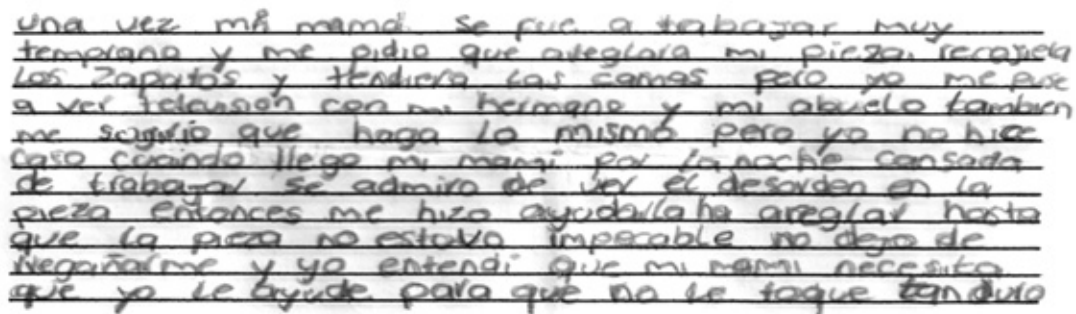 una vez mi mamá se fue a trabagar muy
temprano y me pidio que areglara mi pieza, recogiera
los zapatos y tendiera las camas pero yo me puse
a ver television con mi hermano y mi abuelo tambien
me sugirio que haga lo mismo pero yo no hice
caso cuando llego mi mami por la noche cansada
de trabagar se admiro de ver el desorden en la
pieza entonces me hizo ayudarla ha areglar hasta
que la pieza no estovo impecable no dego de
regañarme y yo entendi que mi mami necesita
que yo le ayude para que no le toque tan duro